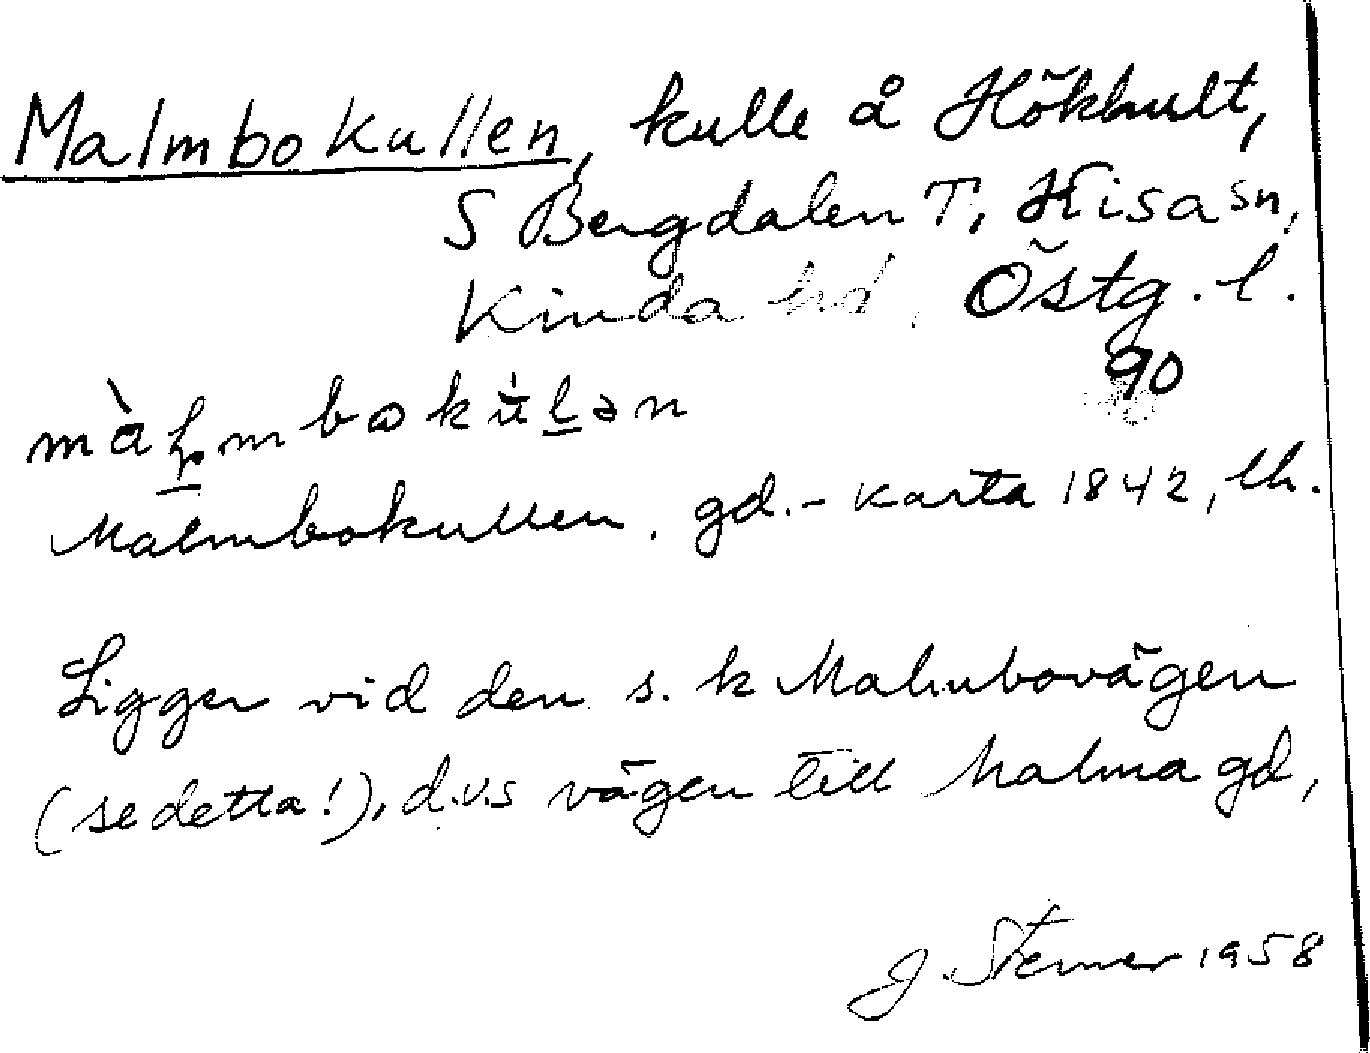 Malmbokullen, kulle å Hökhult,
S Bergdalen T, Kisa sn,
Kinda hd, Östg. l.
90
Malmbokullen, gd.-karta 1842, lh.
Ligger vid den s. k Malmbovägen
(se detta!), d.v.s vägen till Malma gd,
J. Sterner 1958